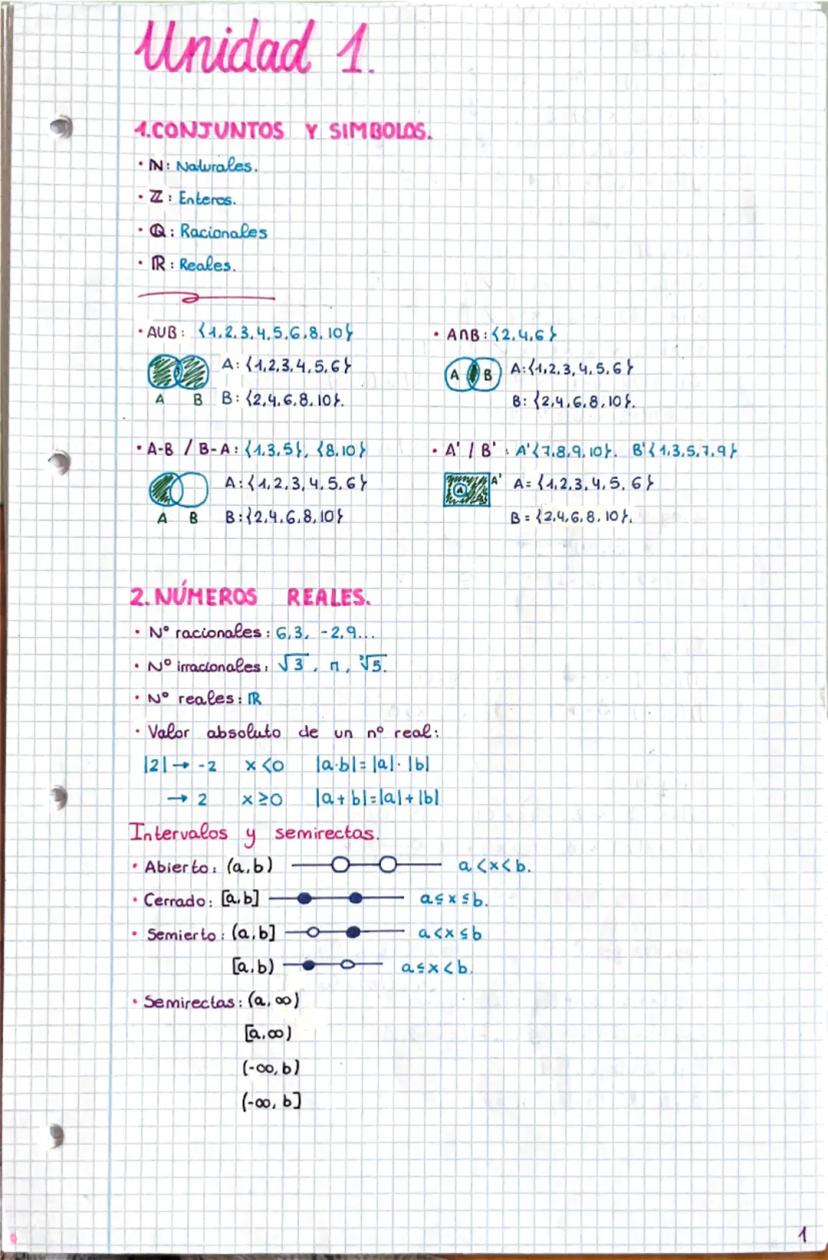 Unidad 1.
1.CONJUNTOS Y SIMBOLOS.
· ℕ: Naturales.
· ℤ: Enteros.
· ℚ: Racionales
· ℝ: Reales.
· AUB: {1,2,3,4,5,6,8,10}
A: {1,2,3,4,5,6}
A B B: {2,4,6,8,10}.
· A∩B: {2,4,6}
A B A:{1,2,3,4,5,6}
B: {2,4,6,8,10}.
· A-B / B-A: {1,3,5}, {8,10}
A: {1,2,3,4,5,6}
A B B:{2,4,6,8,10}
· A' / B' : A'{7,8,9,10}. B'{1,3,5,7,9}
A A' A= {1,2,3,4,5,6}
B = {2,4,6,8,10}.
2.NÚMEROS REALES.
· Nº racionales: 6,3, -2,9...
· Nº irracionales: √3, π, ∛5.
· Nº reales: ℝ
· Valor absoluto de un nº real:
|2| → -2 x<0 |a·b|=|a|·|b|
→ 2 x≥0 |a+b|=|a|+|b|
Intervalos y semirectas.
· Abierto: (a,b) a<x<b.
· Cerrado: [a,b] a≤x≤b.
· Semierto: (a,b] a<x≤b
[a,b) a≤x<b.
· Semirectas: (a,∞)
[a,∞)
(-∞,b)
(-∞,b]
1